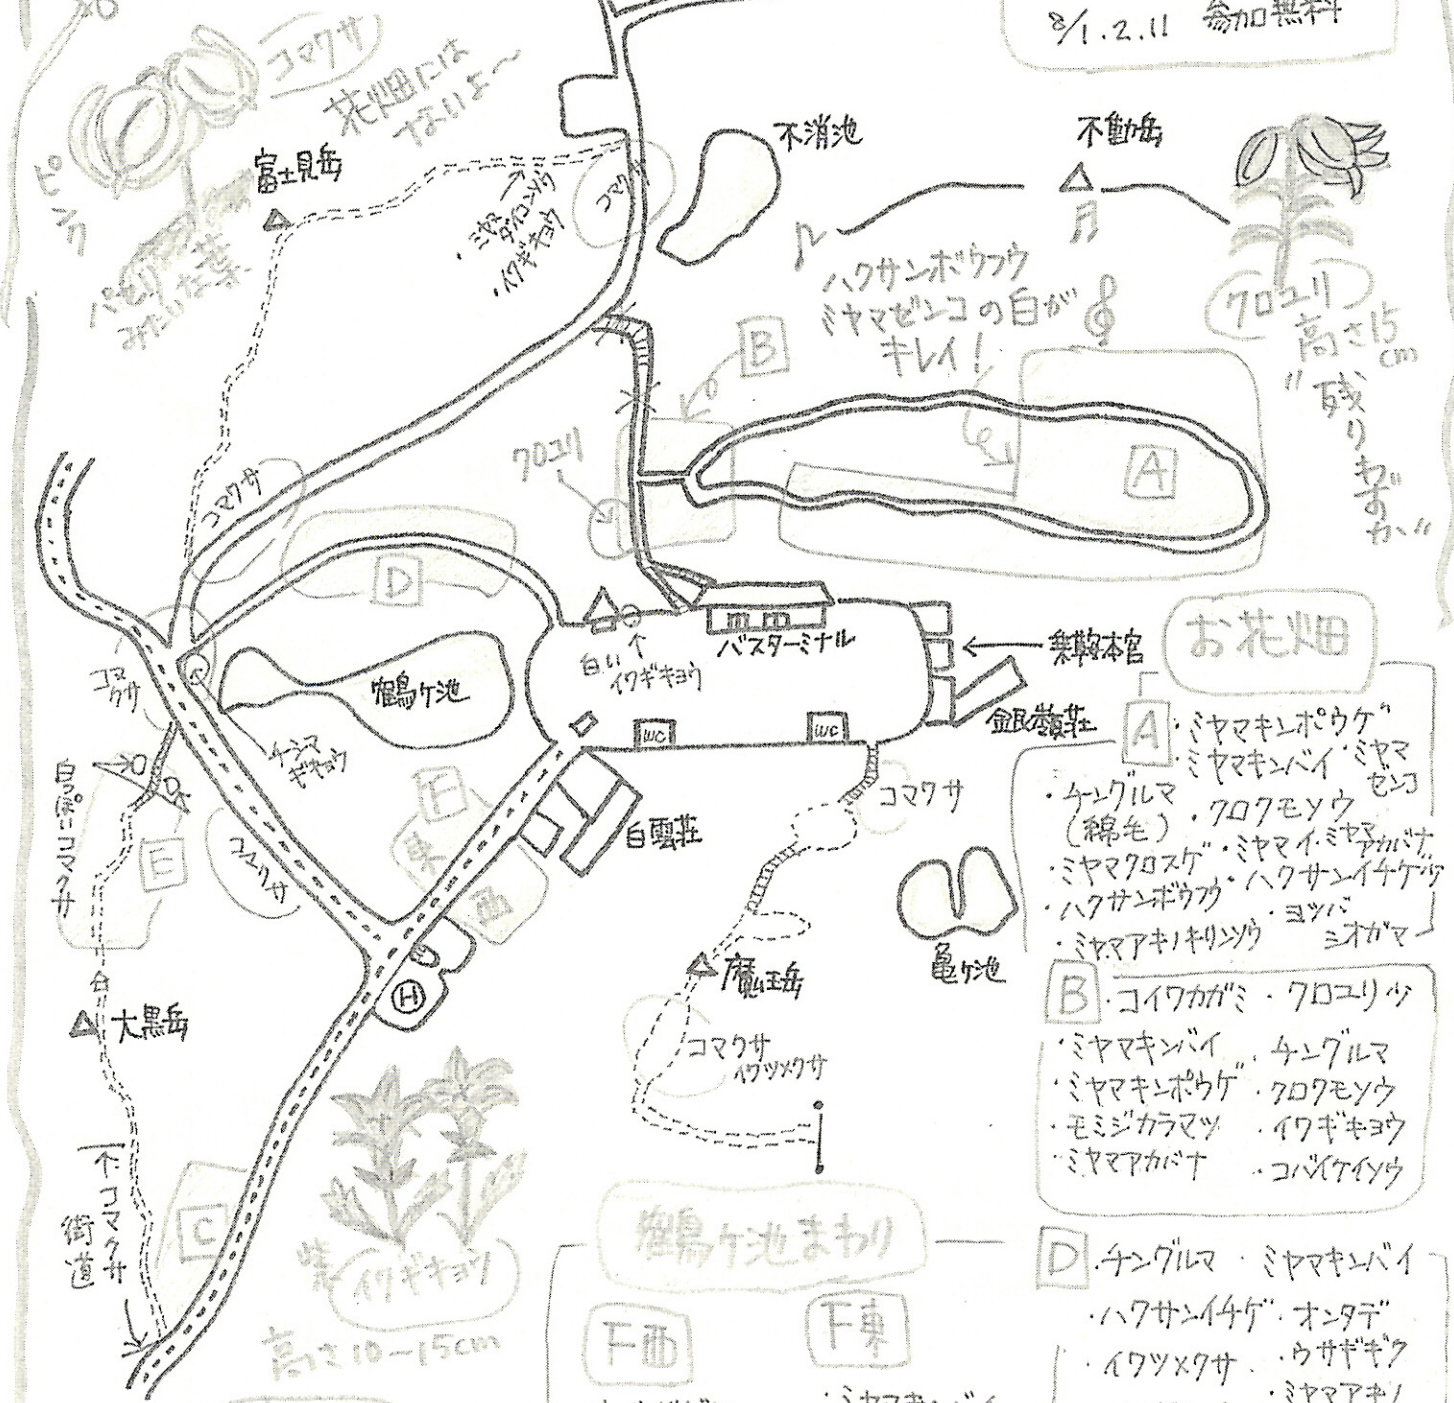 8/1.2.11 参加無料
コマクサ
花畑には
ないよ〜
ピンク
パセリ
みたいな葉
富士見岳
・ミヤマ
ダイコンソウ
・イワギキョウ
コマクサ
不消池
不動岳
ハクサンボウフウ
ミヤマゼンコの白が
キレイ!
クロユリ
高さ15
cm
"残りわずか"
B
A
クロユリ
コマクサ
D
コマクサ
鶴ヶ池
チシマ
ギキョウ
白い
イワギキョウ
バスターミナル
乗鞍本宮
WC
WC
白雲荘
コマクサ
白っぽいコマクサ
E
コマクサ
F
東
西
亀ヶ池
魔王岳
コマクサ
イワツメクサ
大黒岳
H
コマクサ
街道
C
紫
イワギキョウ
高さ10〜15cm
お花畑
A
・ミヤマキンポウゲ
・ミヤマキンバイ・ミヤマ
ゼンコ
・チングルマ
(綿毛)
・クロクモソウ
・ミヤマクロスゲ・ミヤマイ・ミヤマ
アカバナ
・ハクサンボウフウ・ハクサンイチゲ少
・ミヤマアキノキリンソウ・ヨツバ
シオガマ
B・コイワカガミ・クロユリ少
・ミヤマキンバイ・チングルマ
・ミヤマキンポウゲ・クロクモソウ
・モミジカラマツ・イワギキョウ
・ミヤマアカバナ・コバイケイソウ
鶴ヶ池まわり
F西
F東
・ミヤマキンバイ
D・チングルマ・ミヤマキンバイ
・ハクサンイチゲ・オンタデ
・イワツメクサ・ウサギギク
・ミヤマアキノ